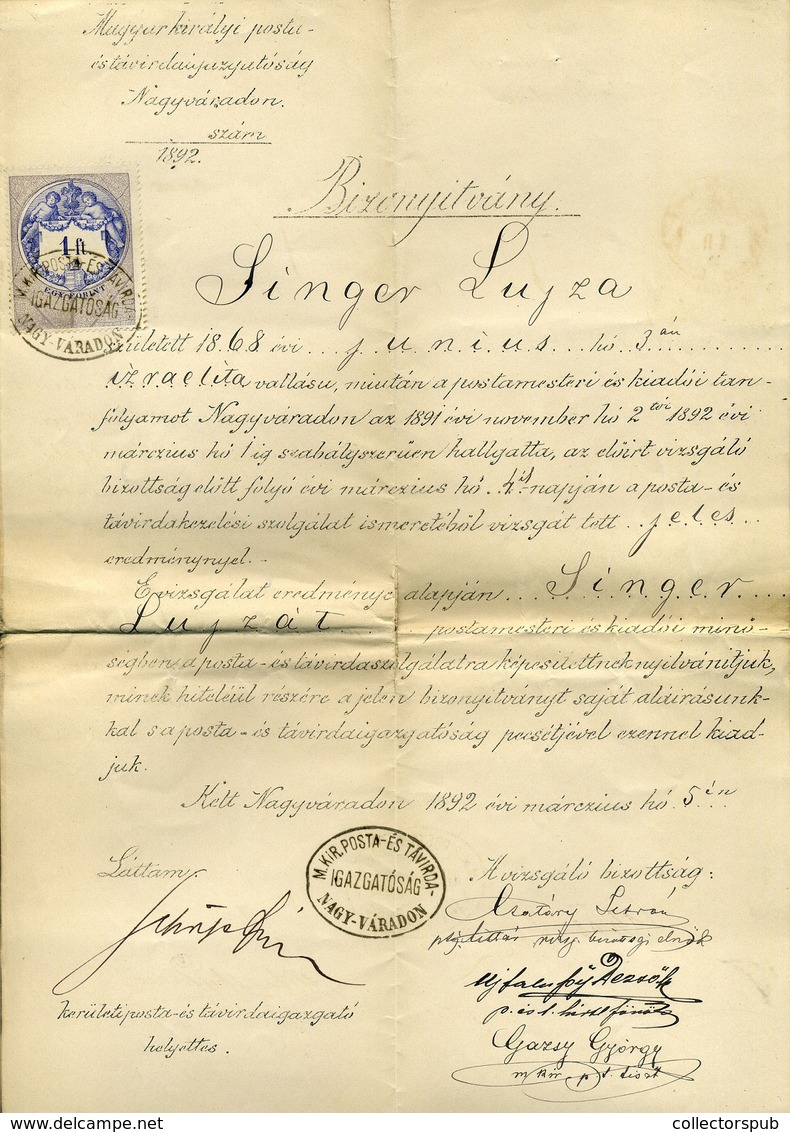 Magyar királyi posta-
és távirdaigazgatóság
Nagyváradon.
szám
1892.
Bizonyitvány.
1 ft.
EGY FORINT
M. KIR. POSTA-ÉS TÁVIRDA-
IGAZGATÓSÁG
NAGY-VÁRADON
Singer Lujza
született 1868 évi junius hó 3án
izraelita vallásu, miután a postamesteri és kiadói tan-
folyamot Nagyváradon az 1891 évi november hó 2tól 1892 évi
márczius hó 1ig szabályszerüen hallgatta, az előirt vizsgáló
bizottság előtt folyó évi márczius hó 4ik napján a posta- és
távirdakezelési szolgálat ismeretéből vizsgát tett jeles
eredménynyel.
E vizsgálat eredménye alapján Singer
Lujzát postamesteri és kiadói minő-
ségben a posta- és távirdaszolgálatra képesitettnek nyilvánitjuk,
minek hiteléül részére a jelen bizonyitványt saját aláirásunk-
kal s a posta- és távirdaigazgatóság pecsétjével ezennel kiad-
juk.
Kelt Nagyváradon 1892 évi márczius hó 5én
Láttam:
M. KIR. POSTA-ÉS TÁVIRDA-
IGAZGATÓSÁG
NAGY-VÁRADON
A vizsgáló bizottság:
kerületi posta- és távirdaigazgató
helyettes.
Ujfalussy Dezsők
Gazsy György
m kir p. t. tiszt
collectorspub